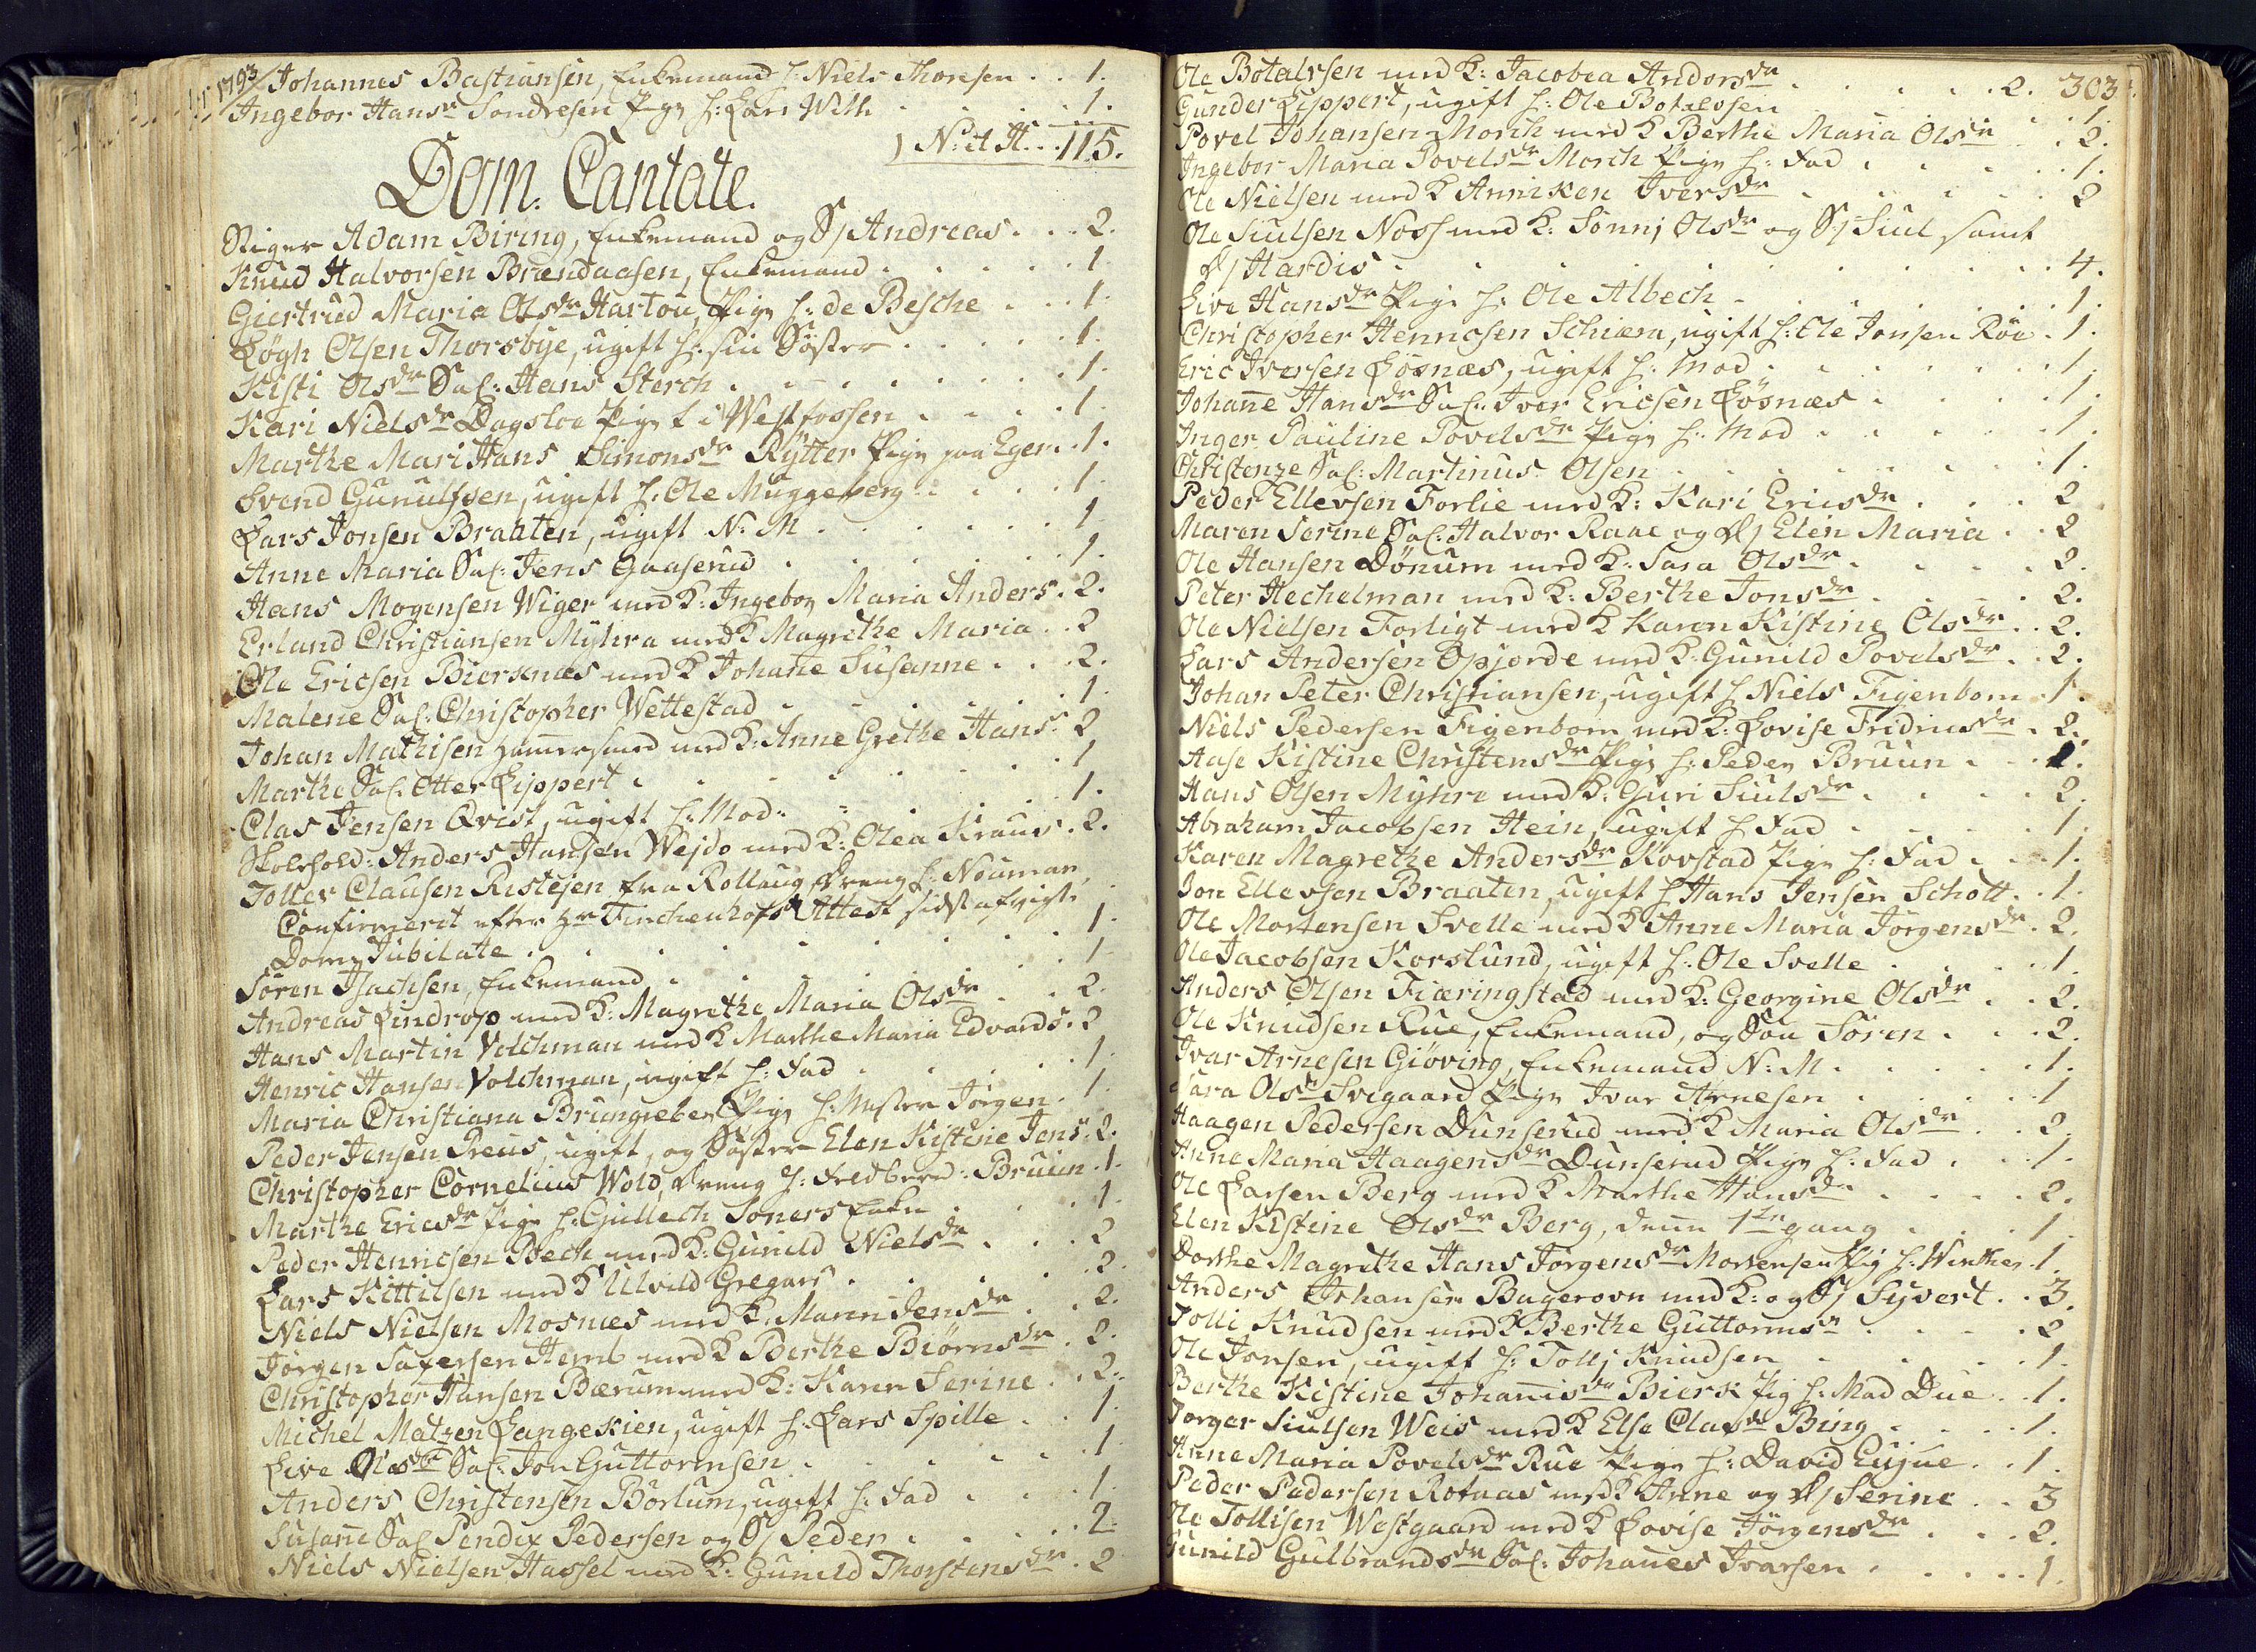 1793 Johannes Bastiansen, Enkemand h: Niels Thoresen . . 1.
Ingebor Hansdr Sondresen Pige h: Lars With . . . 1.
N: et H. . . 115.
Dom. Cantate.
Stiger Adam Biring, Enkemand og S/ Andreas . . . 2.
Knud Halvorsen Brændaasen, Enkemand . . . . 1.
Giertrud Maria Olsdr Hartou, Pige h: de Besche . . . 1.
Løgh Olsen Thorsbye, ugift h: sin Søster . . . . 1.
Kisti Olsdr Sal: Hans Sterch . . . . . . 1.
Kari Nielsdr Dagsloe Pige t i Westfossen . . . . 1.
Marthe Mari Hans Simonsdr Rÿtter Pige paa Eger . . 1.
Svend Gunulfsen, ugift h: Ole Muggeberg . . . . 1.
Lars Jonsen Braaten, ugift N: M . . . . . . 1.
Anne Maria Sal: Jens Gaaserud . . . . . . 1.
Hans Mogensen Wiger med K: Ingebor Maria Anders . 2.
Erland Christiansen Mÿhra med K Magrethe Maria . . 2
Ole Ericsen Bierknæs med K Johanne Susanne . . . 2.
Malene Sal: Christopher Wettestad . . . . . 1.
Johan Mathisen Hammersmed med K: Anne Grethe Hans: 2
Marthe Sal: Otter Lippert . . . . . . . 1
Clas Jensen Qvist, ugift h: Mod: . . . . . 1.
Skolehold: Anders Hansen Wejdo med K: Olea Kraus . 2.
Tollev Clausen Ristejen fra Rollaug Dreng h: Nouman,
Confirmerit efter Hr Finchenhofs Attest sidst afvigte
Dom. Jubilate . . . . . . . . . 1.
Søren Isachsen, Enkemand . . . . . . . 1.
Andreas Lindrop med K: Magrethe Maria Olsdr . . 2.
Hans Martin Volchman med K Marthe Maria Edvards: 2
Henric Hansen Volchman, ugift h: Fad . . . . 1.
Maria Christiana Brungreber Pige h: Mester Jørgen . 1.
Peder Jensen Preus, ugift, og Søster Elen Kistine Jens: 2.
Christopher Cornelius Wold, Dreng h: Feldbered: Bruun . 1.
Marthe Ericsdr Pige h: Gullech Soners Enke . . . 1.
Peder Henricsen Bech med K: Gunild Nielsdr . . . 2
Lars Kittilsen med K Ulvild Gregars . . . . . 2.
Niels Nielsen Mosnæs med K. Maren Jensdr . . . 2.
Jørgen Saxersen Hemb med K Berthe Biørnsdr . 2.
Christopher Hansen Bærum med K: Karen Serine . . 2.
Michel Matzen Langekien, ugift h: Lars Spille . . 1.
Live Olsdr Sal: Jon Guttormsen . . . . . 1
Anders Christensen Børlum, ugift h: Fad . . . 1.
Susanne Sal Pendix Pedersen og S/ Peder . . . . 2.
Niels Nielsen Hassel med K: Gunild Thorstensdr . 2
303.
Ole Botalvsen med K: Jacobea Andorsdr . . . . 2.
Gunder Lippert, ugift h: Ole Botalvsen . . . . 1.
Povel Johansen Morch med K Berthe Maria Olsdr . . 2.
Ingebor Maria Povelsdr Morch Pige h: Fad . . . . 1.
Ole Nielsen med K Anniken Iversdr . . . . . 2
Ole Siulsen Noss med K: Sønnj Olsdr og S/ Siul samt
D/ Hardis . . . . . . . . . . 4.
Live Hansdr Pige h: Ole Albech . . . . . . 1.
Christopher Henricsen Schiæra, ugift h: Ole Jonsen Røe . 1.
Eric Iversen Løsnæs, ugift h: Mod . . . . . 1.
Johanne Hansdr Sal: Iver Ericsen Løsnæs . . . . 1.
Inger Pauline Povelsdr Pige h: Mod . . . . . 1.
Christenze Sal: Martinus Olsen . . . . . . 1.
Peder Ellevsen Forlie med K: Kari Ericsdr . . . 2
Maren Serine Sal: Halvor Raae og D/ Elen Maria . . 2
Ole Hansen Dønum med K: Sara Olsdr . . . . 2.
Peter Hechelman med K: Berthe Jonsdr . . . . 2.
Ole Nielsen Forligt med K Karen Kistine Olsdr . . 2.
Lars Andersen Opjorde med K: Gunild Povelsdr . . 2.
Johan Peter Christiansen, ugift h Niels Figenbom . 1.
Niels Pedersen Figenbom med K: Lovise Fridricsdr . 2.
Aase Kistine Christensdr Pige h: Peder Bruun . . . 1.
Hans Olsen Mÿhre med K: Guri Siulsdr . . . . 2.
Abraham Jacobsen Hein, ugift h Fad . . . . . 1.
Karen Magrethe Andersdr Kovstad Pige h: Fad . . . 1.
Jon Ellevsen Braaten, ugift h Hans Jensen Schott . . 1.
Ole Mortensen Svelle med K Anne Maria Jørgensdr . 2.
Ole Jacobsen Korslund, ugift h: Ole Svelle . . . . 1.
Anders Olsen Fiæringstad med K: Georgine Olsdr . . 2.
Ole Knudsen Rue, Enkemand, og Søn Søren . . . 2.
Ivar Arnesen Giøving, Enkemand N: M . . . . . 1.
Sara Olsdr Svigaard Pige Ivar Arnesen . . . . 1
Haagen Pedersen Dunserud med K Maria Olsdr . . 2.
Anne Maria Haagensdr Dunserud Pige h: Fad . . . 1.
Ole Larsen Berg med K Marthe Hansdr . . . . 2.
Elen Kistine Olsdr Berg, denn 1ste gang . . . . 1.
Dorthe Magrethe Hans Jørgensdr Mortensen Pig h: Winther . 1.
Anders Johansen Bagerovn med K: og S/ Syvert . . 3.
Tolli Knudsen med K Berthe Guttormsdr . . . . 2
Ole Jonsen, ugift h: Tollj Knudsen . . . . . 1.
Berthe Kistine Johannisdr Bierk Pig h: Mad Due . . 1.
Torger Siulsen Weis med K Else Clasdr Bing . . . 1.
Anne Maria Povelsdr Rue Pige h: David Eujue . . 1.
Peder Pedersen Rotaas med K Anne og D/ Serine . . 3
Ole Tollisen Westgaard med K Lovise Jørgensdr . . 2.
Gunild Gulbrandsdr Sal: Johannes Ivarsen . . . . 1.